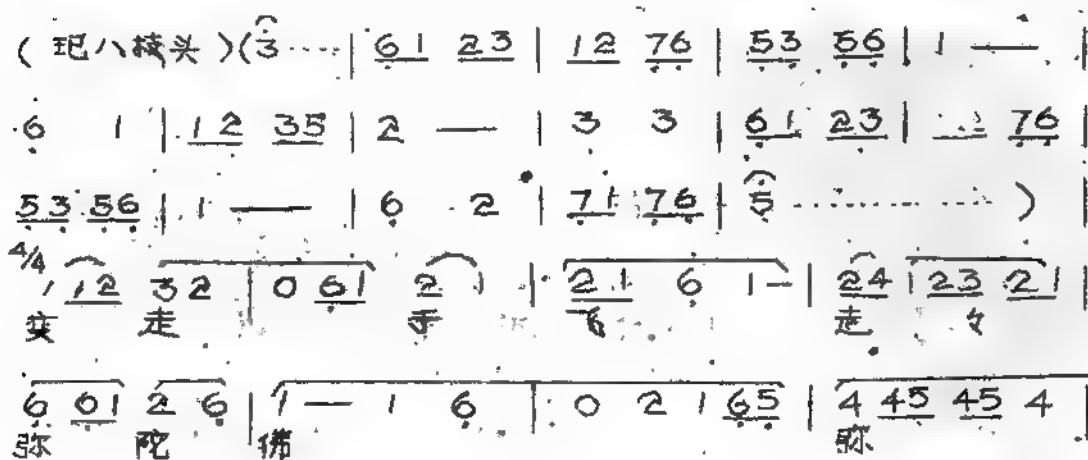 (玘八枝头)(3······| 61 23 | 12 76 | 53 56 | 1 — |
6 1 | 12 35 | 2 — | 3 3 | 61 23 | 76 |
53 56 | 1 — | 6 2 | 71 76 | 5 ············)
4/4
1 12 32 | 0 61 2 1 | 21 6 1- | 24 | 23 21 |
变 走 手 走 
6 01 2 6 | 1 — 1 6 | 0 2 1 65 | 4 45 45 4 |
弥 陀 佛 弥